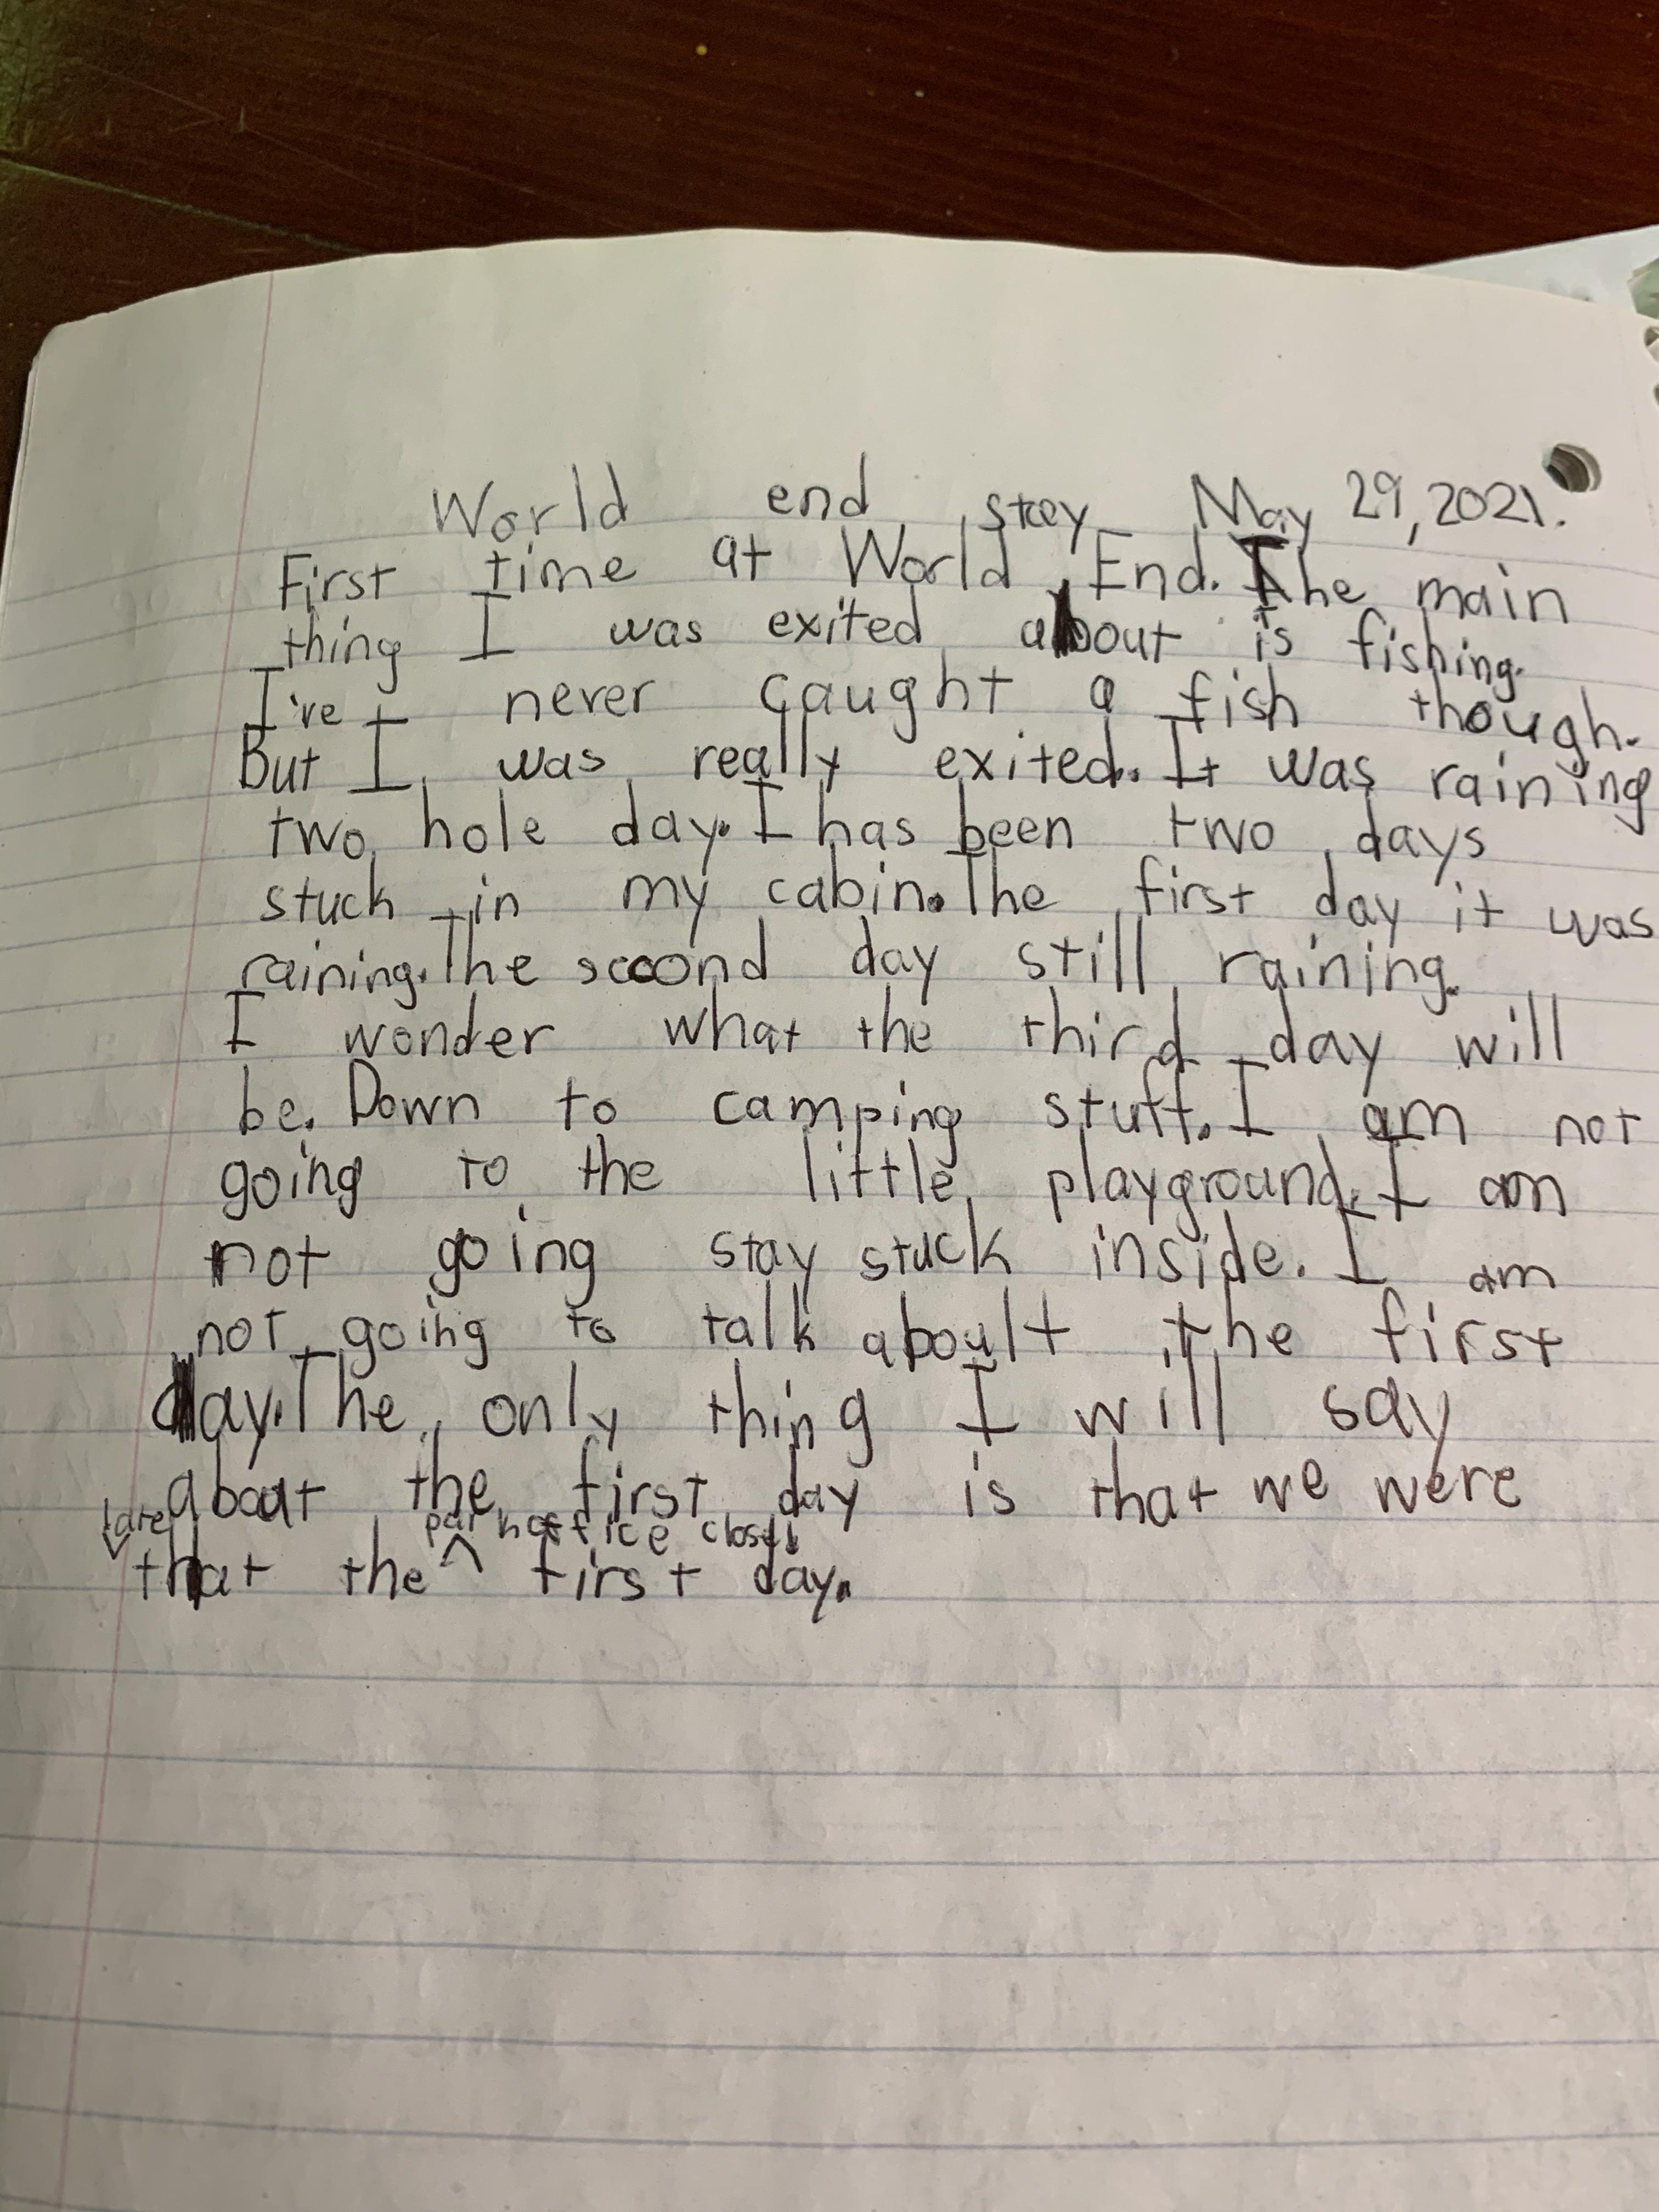 World end stay May 29, 2021.
First time at World End. The main
thing I was exited about is fishing.
I've never caught a fish though.
But I was really exited. It was raining
two hole day. I has been two days
stuck in my cabin. The first day it was
raining. The second day still raining.
I wonder what the third day will
be. Down to camping stuff. I am not
going to the little playground. I am
not going stay stuck inside. I am
not going to talk about the first
day. The only thing I will say
about the first day is that we were
late office closed
that the first day.